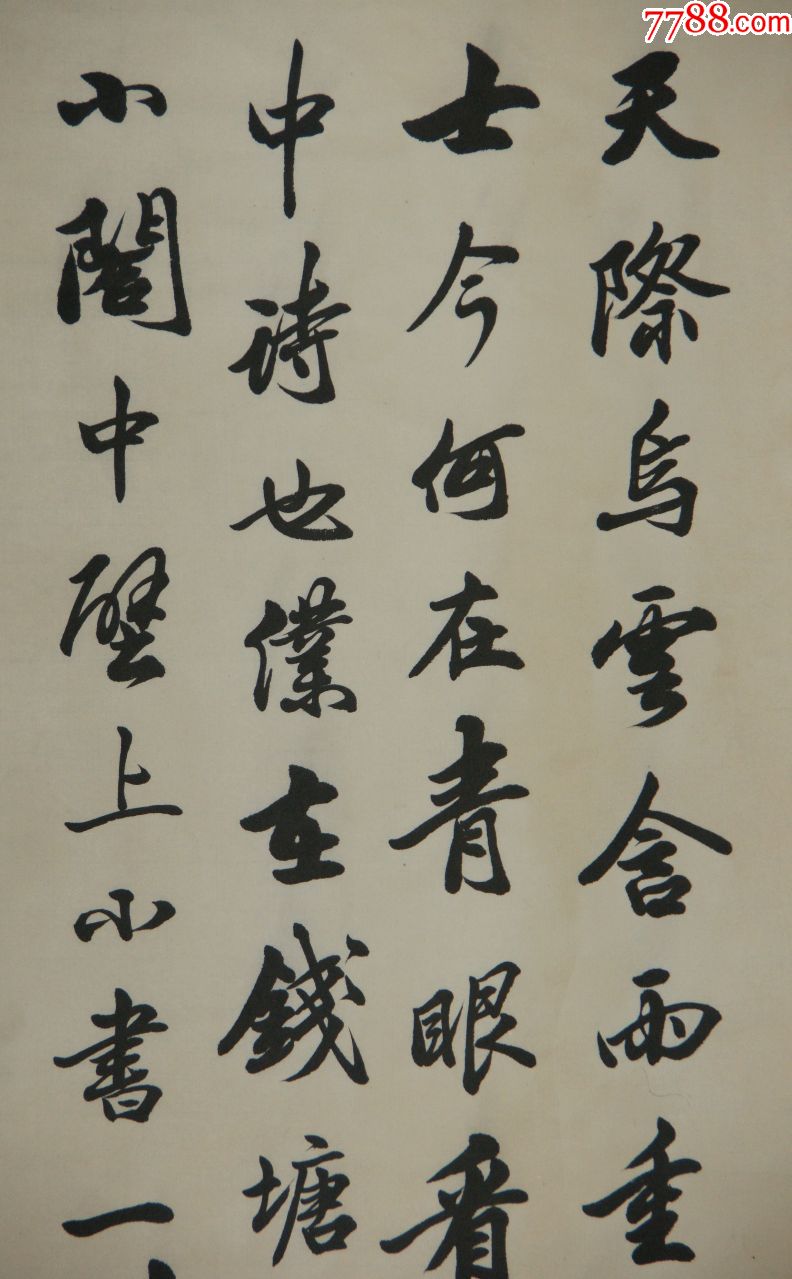 7788.com
天際烏雲含雨重
士今何在青眼看
中詩也僕在錢塘
小閣中壁上小書一